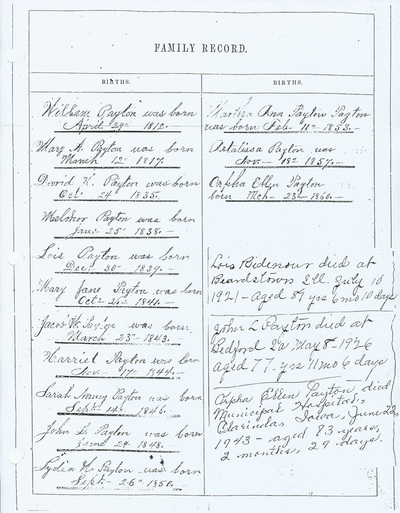 FAMILY RECORD.
BIRTHS.
William Payton was born
April 29th 1812.
Mary A. Payton was born
March 12th 1817.
David K. Payton was born
Oct. 24th 1835.
Melchor Payton was born
Jan. 25th 1838.
Lois Payton was born
Dec. 30th 1839.
Mary Jane Payton was born
Oct. 1841.
Jacob W. Payton was born
March 23rd 1843.
Harriet Payton was born
Nov. 17th 1844.
Sarah Nancy Payton was born
Sept. 14th 1846.
John L. Payton was born
June 2d 1848.
Lydia H Payton was born
Sept. 26th 1850.
BIRTHS.
Martha Ann Payton Payton
was born Feb. 11th 1853.
Artalissa Payton was
Nov. 18th 1857.
Orpha Ellen Payton
born Mch 23rd 1860.
Lois Ridenour died at
Beardstown Ill. July 10
1921 - Aged 81 yrs 6 mo 10 days
John L Payton died at
Bedford Ia May 8th 1926
aged 77 yrs 11 mo 6 days
Orpha Ellen Payton died
Municipal Hospital,
Clarinda, Iowa, June 22,
1943 - aged 83 years,
2 months, 29 days.